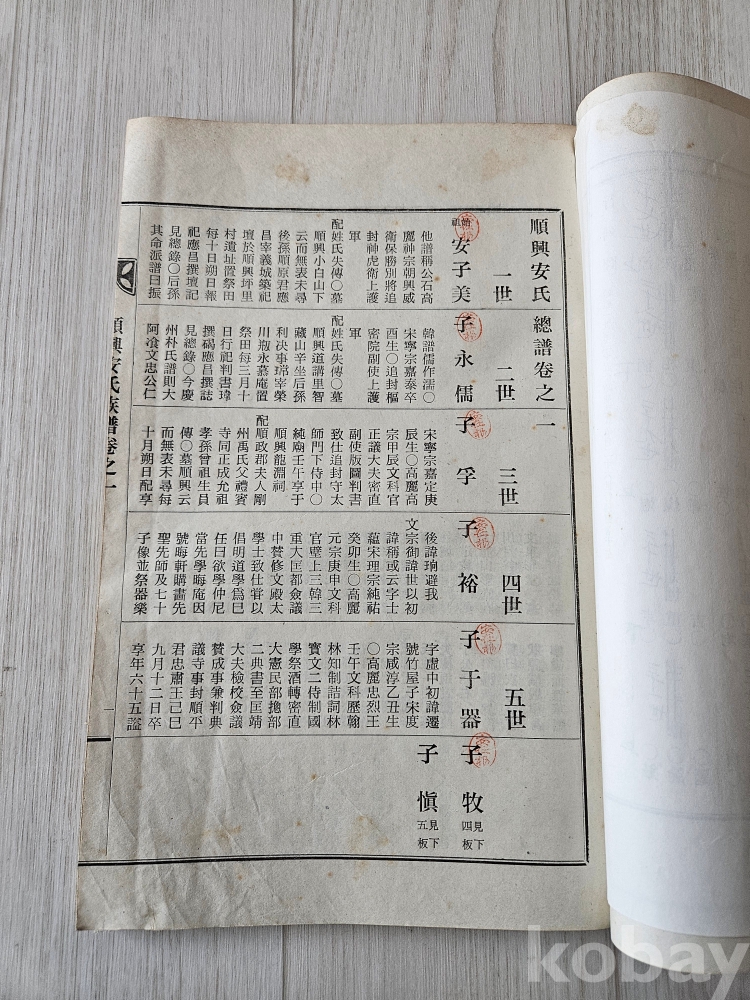 順興安氏 總譜卷之一
一世
始祖 安子美
他譜稱公石高
麗神宗朝興威
衛保勝別將追
封神虎衛上護
軍
配姓氏失傳〇墓
順興小白山下
云而無表未尋
後孫順原君應
昌宰義城築祀
壇於順興坪里
村遺址置祭田
每十日朔日報
祀應昌撰壇記
見總錄〇后孫
其命派譜曰振
二世
子 永儒
韓譜儒作濡〇
宋寧宗嘉泰卒
酉生〇追封樞
密院副使上護
軍
配姓氏失傳〇墓
順興道講里智
藏山辛坐后孫
利決事塔宰榮
川㧞永慕庵置
祭田每三月十
日行祀判書瑋
撰碣應昌撰誌
見總錄〇今慶
州朴氏譜則大
阿飡文忠公仁
三世
子 孚
宋寧宗嘉定庚
辰生〇高麗高
宗甲辰文科官
正議大夫密直
副使版圖判書
致仕追封守太
師門下侍中〇
純廟壬午享于
順興龍淵祠
配順政郡夫人剛
州禹氏父禮賓
寺同正成允祖
孝孫曾祖生員
傳〇墓順興云
而無表未尋每
十月朔日配享
四世
子 裕
後諱珦避我
文宗御諱世以初
諱稱或云字士
蘊宋理宗純祐
癸卯生〇高麗
元宗庚申文科
官壁上三韓三
重大匡都僉議
中贊修文殿太
學士致仕甞以
倡明道學爲己
任曰欲學仲尼
當先學晦庵因
號晦軒購畵先
聖先師及七十
子像並祭器樂
五世
子 于器
字虛中初諱遷
號竹屋子宋度
宗咸淳乙丑生
〇高麗忠烈王
壬午文科歷翰
林知制誥詞林
寶文二侍制國
學祭酒轉密直
大憲民部摠部
二典書至匡靖
大夫檢校僉議
贊成事兼判典
議寺事封順平
君忠肅王己巳
九月十二日卒
享年六十五謚
子 牧 見下四板
子 愼 見下五板
順興安氏族譜卷之一
kobay